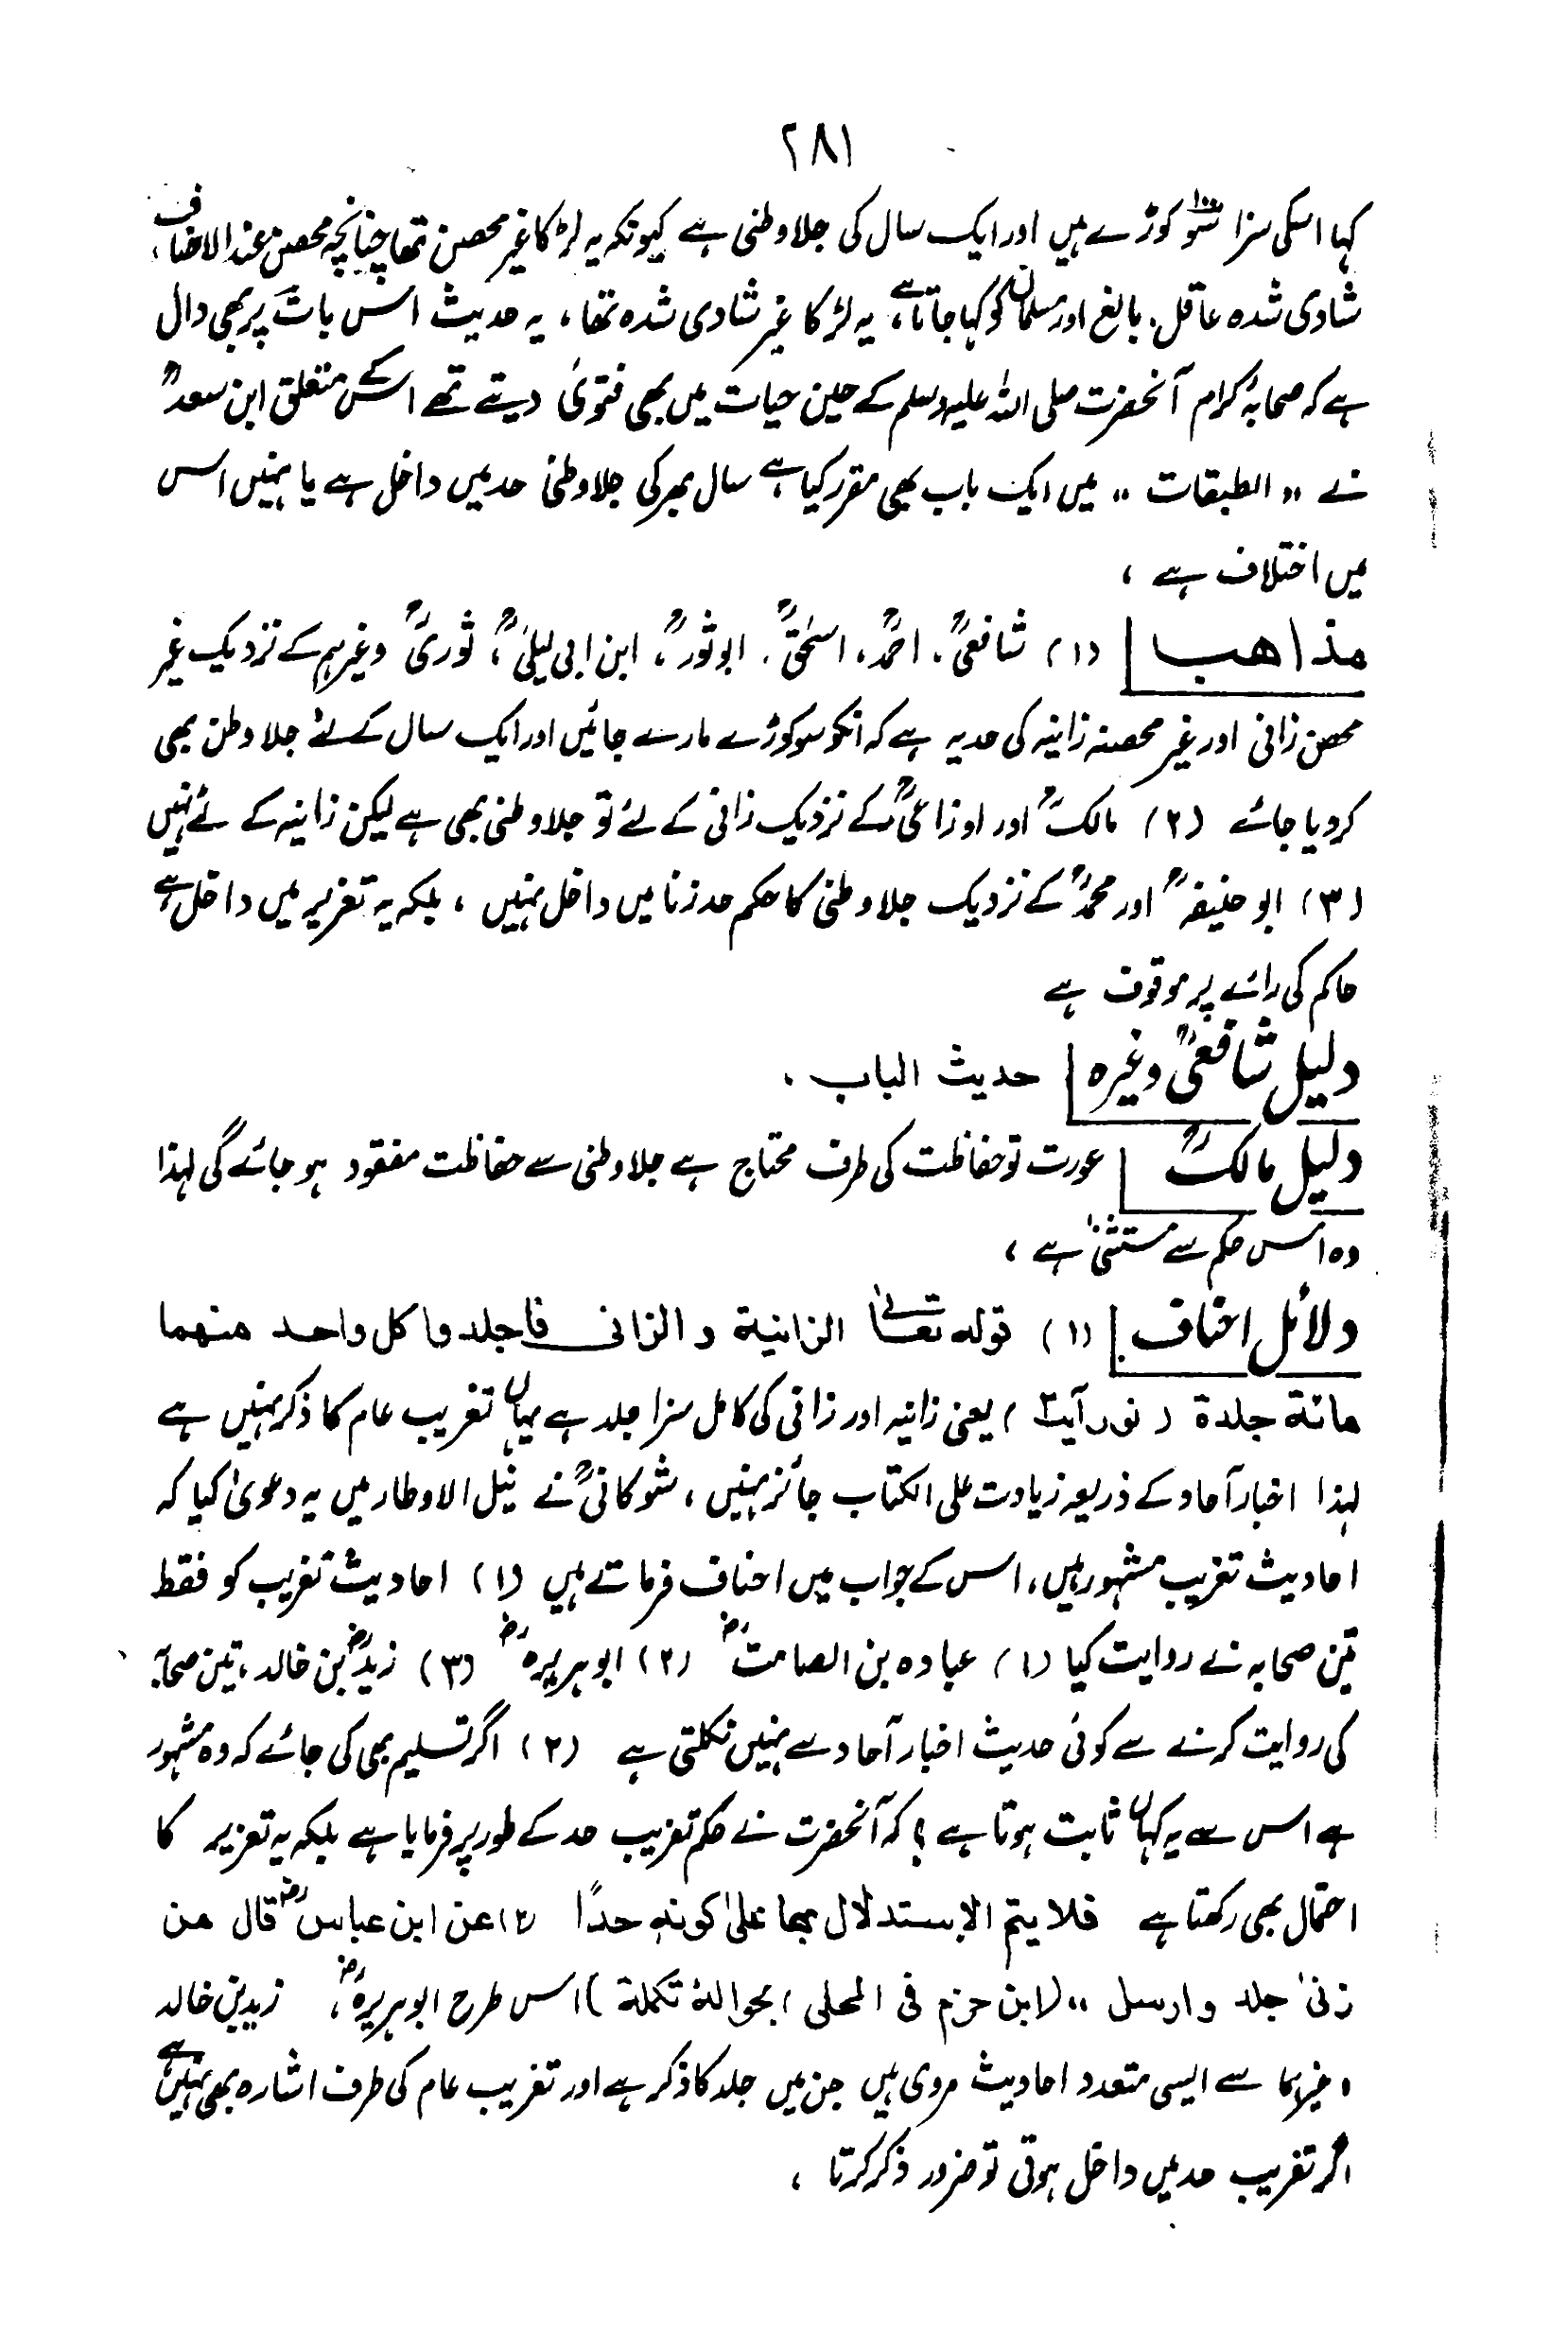 ۲۸۱
کہا اسکی سزا سو کوڑے ہیں اور ایک سال کی جلاوطنی ہے کیونکہ یہ لڑکا غیر محصن تھا چنانچہ محصن عند الاحناف،
شادی شدہ عاقل، بالغ اور مسلمان کو کہا جاتا ہے، یہ لڑکا غیر شادی شدہ تھا، یہ حدیث اس بات پر بھی دال
ہے کہ صحابۂ کرام آنحضرت صلی اللہ علیہ وسلم کے حین حیات میں بھی فتویٰ دیتے تھے اس کے متعلق ابن سعدؒ
نے ،، الطبقات ،، میں ایک باب بھی مقرر کیا ہے سال بھر کی جلاوطنی حد میں داخل ہے یا نہیں اس
میں اختلاف ہے ،
مذاهب (۱) شافعیؒ، احمدؒ، اسحٰقؒ، ابو ثورؒ، ابن ابی لیلیٰؒ، ثوریؒ وغیرہم کے نزدیک غیر
محصن زانی اور غیر محصنہ زانیہ کی حد یہ ہے کہ انکو سو کوڑے مارے جائیں اور ایک سال کے لئے جلاوطن بھی
کردیا جائے (۲) مالکؒ اور اوزاعیؒ کے نزدیک زانی کے لئے تو جلاوطنی بھی ہے لیکن زانیہ کے لئے نہیں
(۳) ابو حنیفہؒ اور محمدؒ کے نزدیک جلاوطنی کا حکم حد زنا میں داخل نہیں ، بلکہ یہ تعزیر میں داخل ہے
حاکم کی رائے پر موقوف ہے
دلیل شافعیؒ وغیرہ حدیث الباب .
دلیل مالکؒ عورت تو حفاظت کی طرف محتاج ہے جلاوطنی سے حفاظت مفقود ہو جائے گی لہذا
وہ اس حکم سے مستثنیٰ ہے ،
دلائل احناف (۱) قوله تعالىٰ الزانیة و الزانی فاجلدوا کل واحد منهما
مائة جلدة ( نور آیت ۲ ) یعنی زانیہ اور زانی کی کامل سزا جلد ہے یہاں تغریب عام کا ذکر نہیں ہے
لہذا اخبار آحاد کے ذریعہ زیادت علی الکتاب جائز نہیں ، شوکانیؒ نے نیل الاوطار میں یہ دعویٰ کیا کہ
احادیث تغریب مشہور ہیں، اس کے جواب میں احناف فرماتے ہیں (۱) احادیث تغریب کو فقط
تین صحابہ نے روایت کیا (۱) عبادہ بن الصامتؓ (۲) ابو ہریرہؓ (۳) زیدؓ بن خالد، تین صحابہ
کی روایت کرنے سے کوئی حدیث اخبار آحاد سے نہیں نکلتی ہے (۲) اگر تسلیم بھی کی جائے کہ وہ مشہور
ہے اس سے یہ کہاں ثابت ہوتا ہے ؟ کہ آنحضرت نے حکم تغریب حد کے طور پر فرمایا ہے بلکہ یہ تعزیر کا
احتمال بھی رکھتا ہے فلا یتم الاستدلال بها علیٰ کونه حدًا (۲) عن ابن عباسؓ قال من
زنیٰ جلد و ارسل ،، (لابن حزم فی المحلی ، بحوالۂ تکملة) اس طرح ابو ہریرہؓ، زید بن خالد
وغیرہما سے ایسی متعدد احادیث مروی ہیں جن میں جلد کا ذکر ہے اور تغریب عام کی طرف اشارہ بھی نہیں ہے
اگر تغریب حد میں داخل ہوتی تو ضرور ذکر کرتا ،